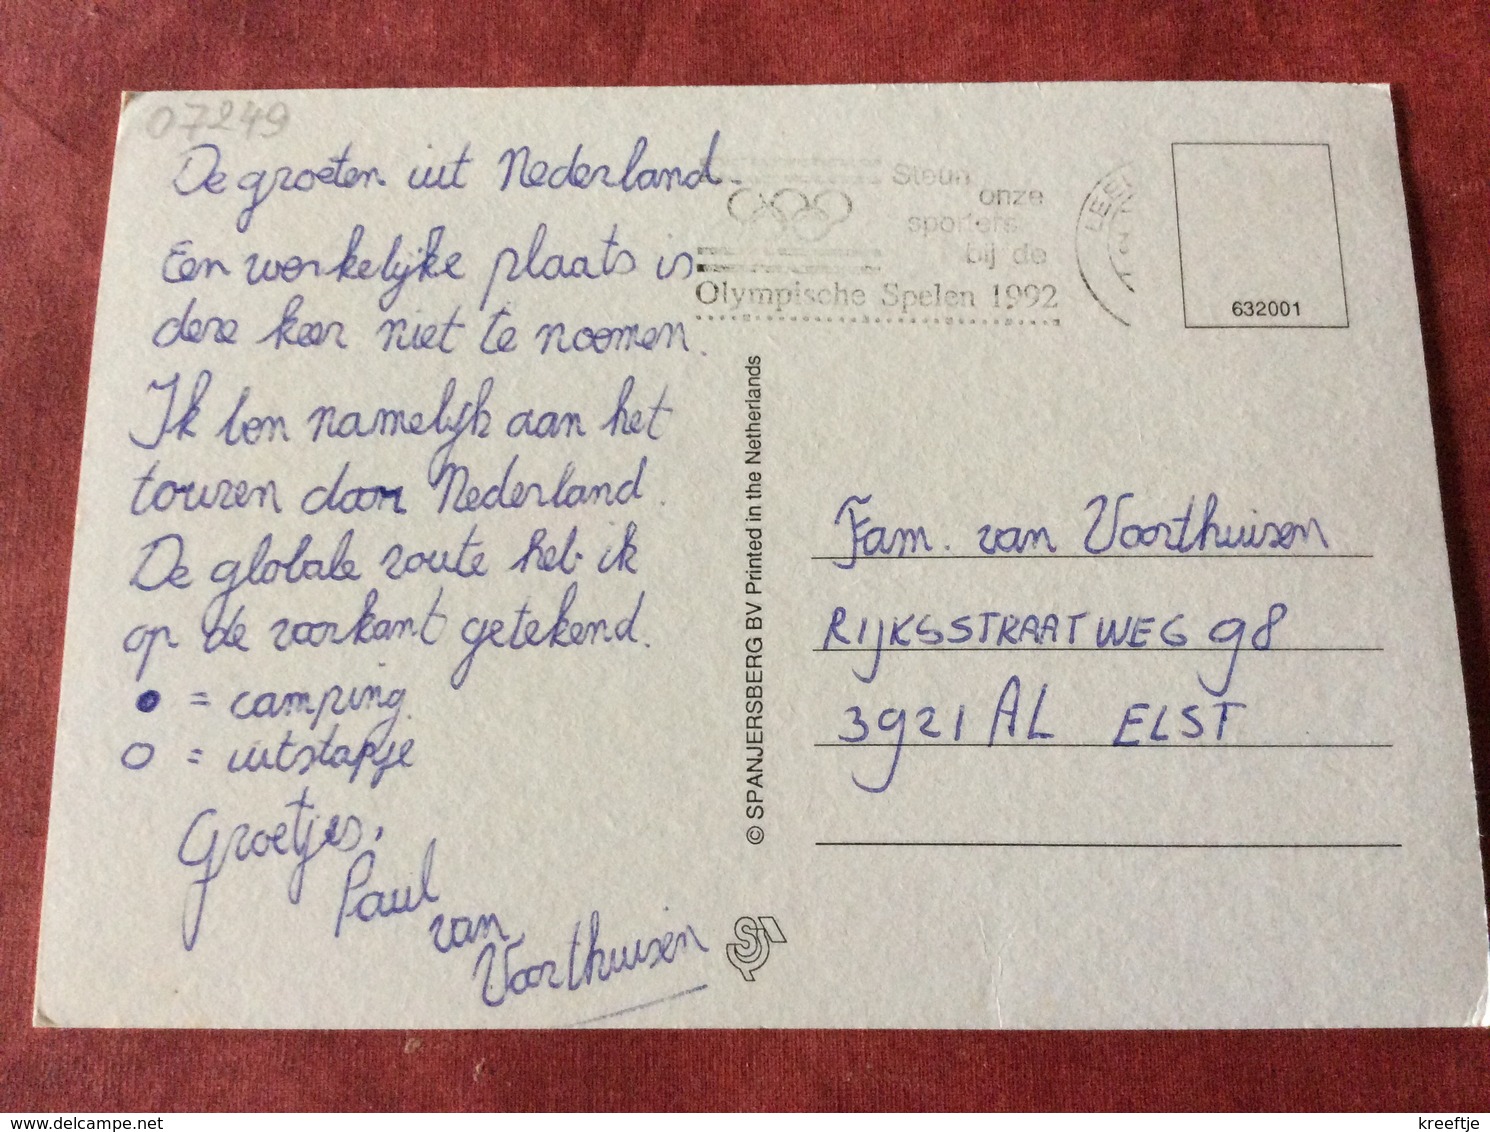 07249
De groeten uit Nederland.
Een werkelijke plaats is
deze keer niet te noemen.
Ik ben namelijk aan het
touren door Nederland.
De globale route heb ik
op de voorkant getekend.
● = camping.
O = uitstapje
Groetjes,
Paul
van
Voorthuisen
Steun
onze
sporters
bij de
Olympische Spelen 1992
632001
© SPANJERSBERG BV Printed in the Netherlands
Fam. van Voorthuisen
RIJKSSTRAATWEG 98
3921 AL ELST
delcampe.net
kreeftje